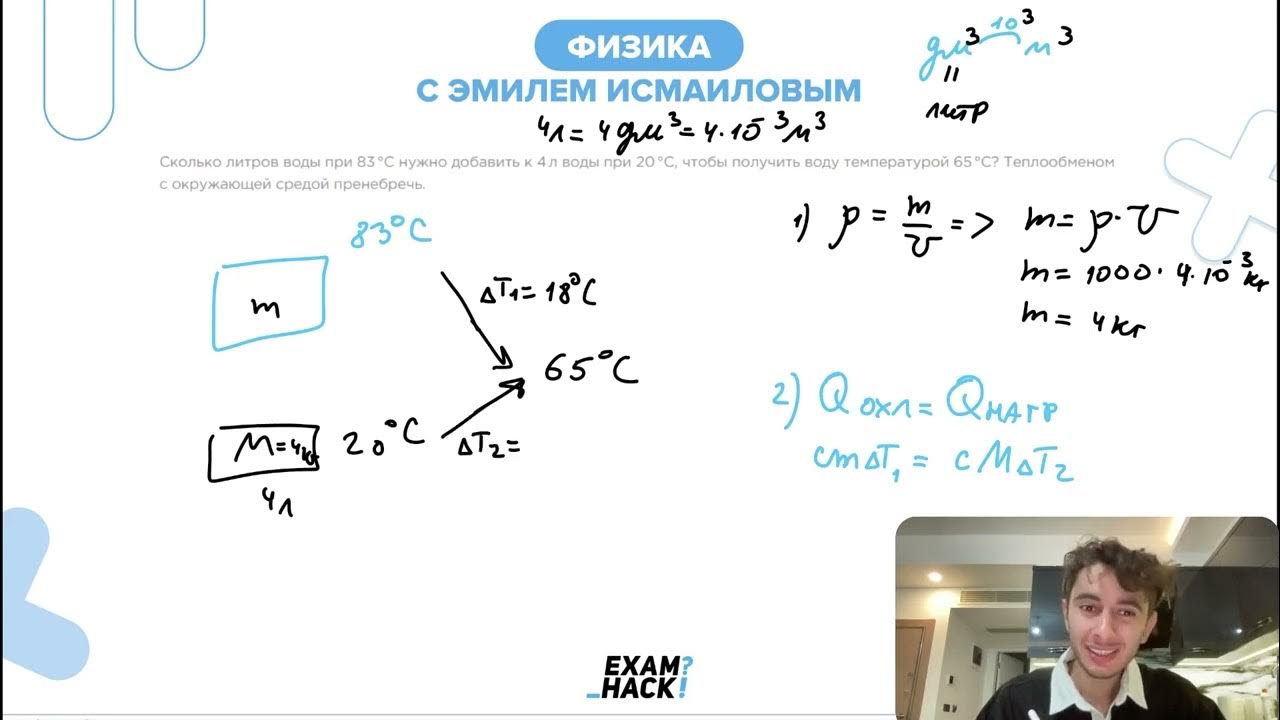 ФИЗИКА
С ЭМИЛЕМ ИСМАИЛОВЫМ
дм³ 10³ м³
||
литр
4л = 4дм³ = 4·10⁻³м³
Сколько литров воды при 83 °C нужно добавить к 4 л воды при 20 °C, чтобы получить воду температурой 65 °C? Теплообменом
с окружающей средой пренебречь.
83°C
m
ΔT₁ = 18°C
65°C
M=4кг 20°C ΔT₂ =
4л
1) ρ = m/V => m = ρ·V
m = 1000·4·10⁻³ кг
m = 4кг
2) Qохл = Qнагр
cmΔT₁ = cMΔT₂
EXAM?
_HACK!